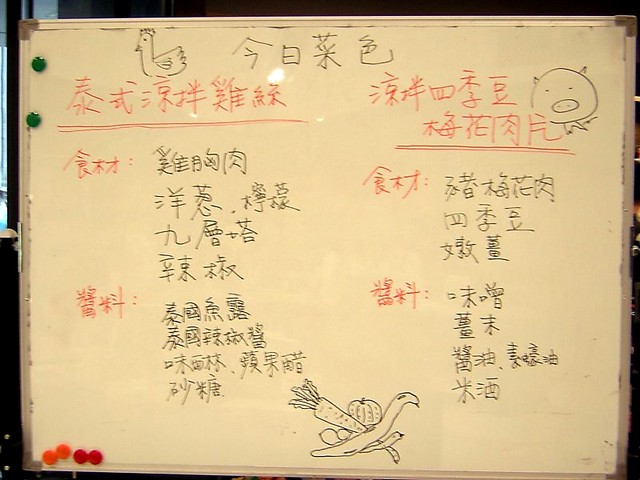 今日菜色
泰式涼拌雞絲
食材：雞胸肉
洋蔥、檸檬
九層塔
辣椒
醬料：泰國魚露
泰國辣椒醬
味醂、蘋果醋
砂糖
涼拌四季豆
梅花肉片
食材：豬梅花肉
四季豆
嫩薑
醬料：味噌
薑末
醬油、素蠔油
米酒